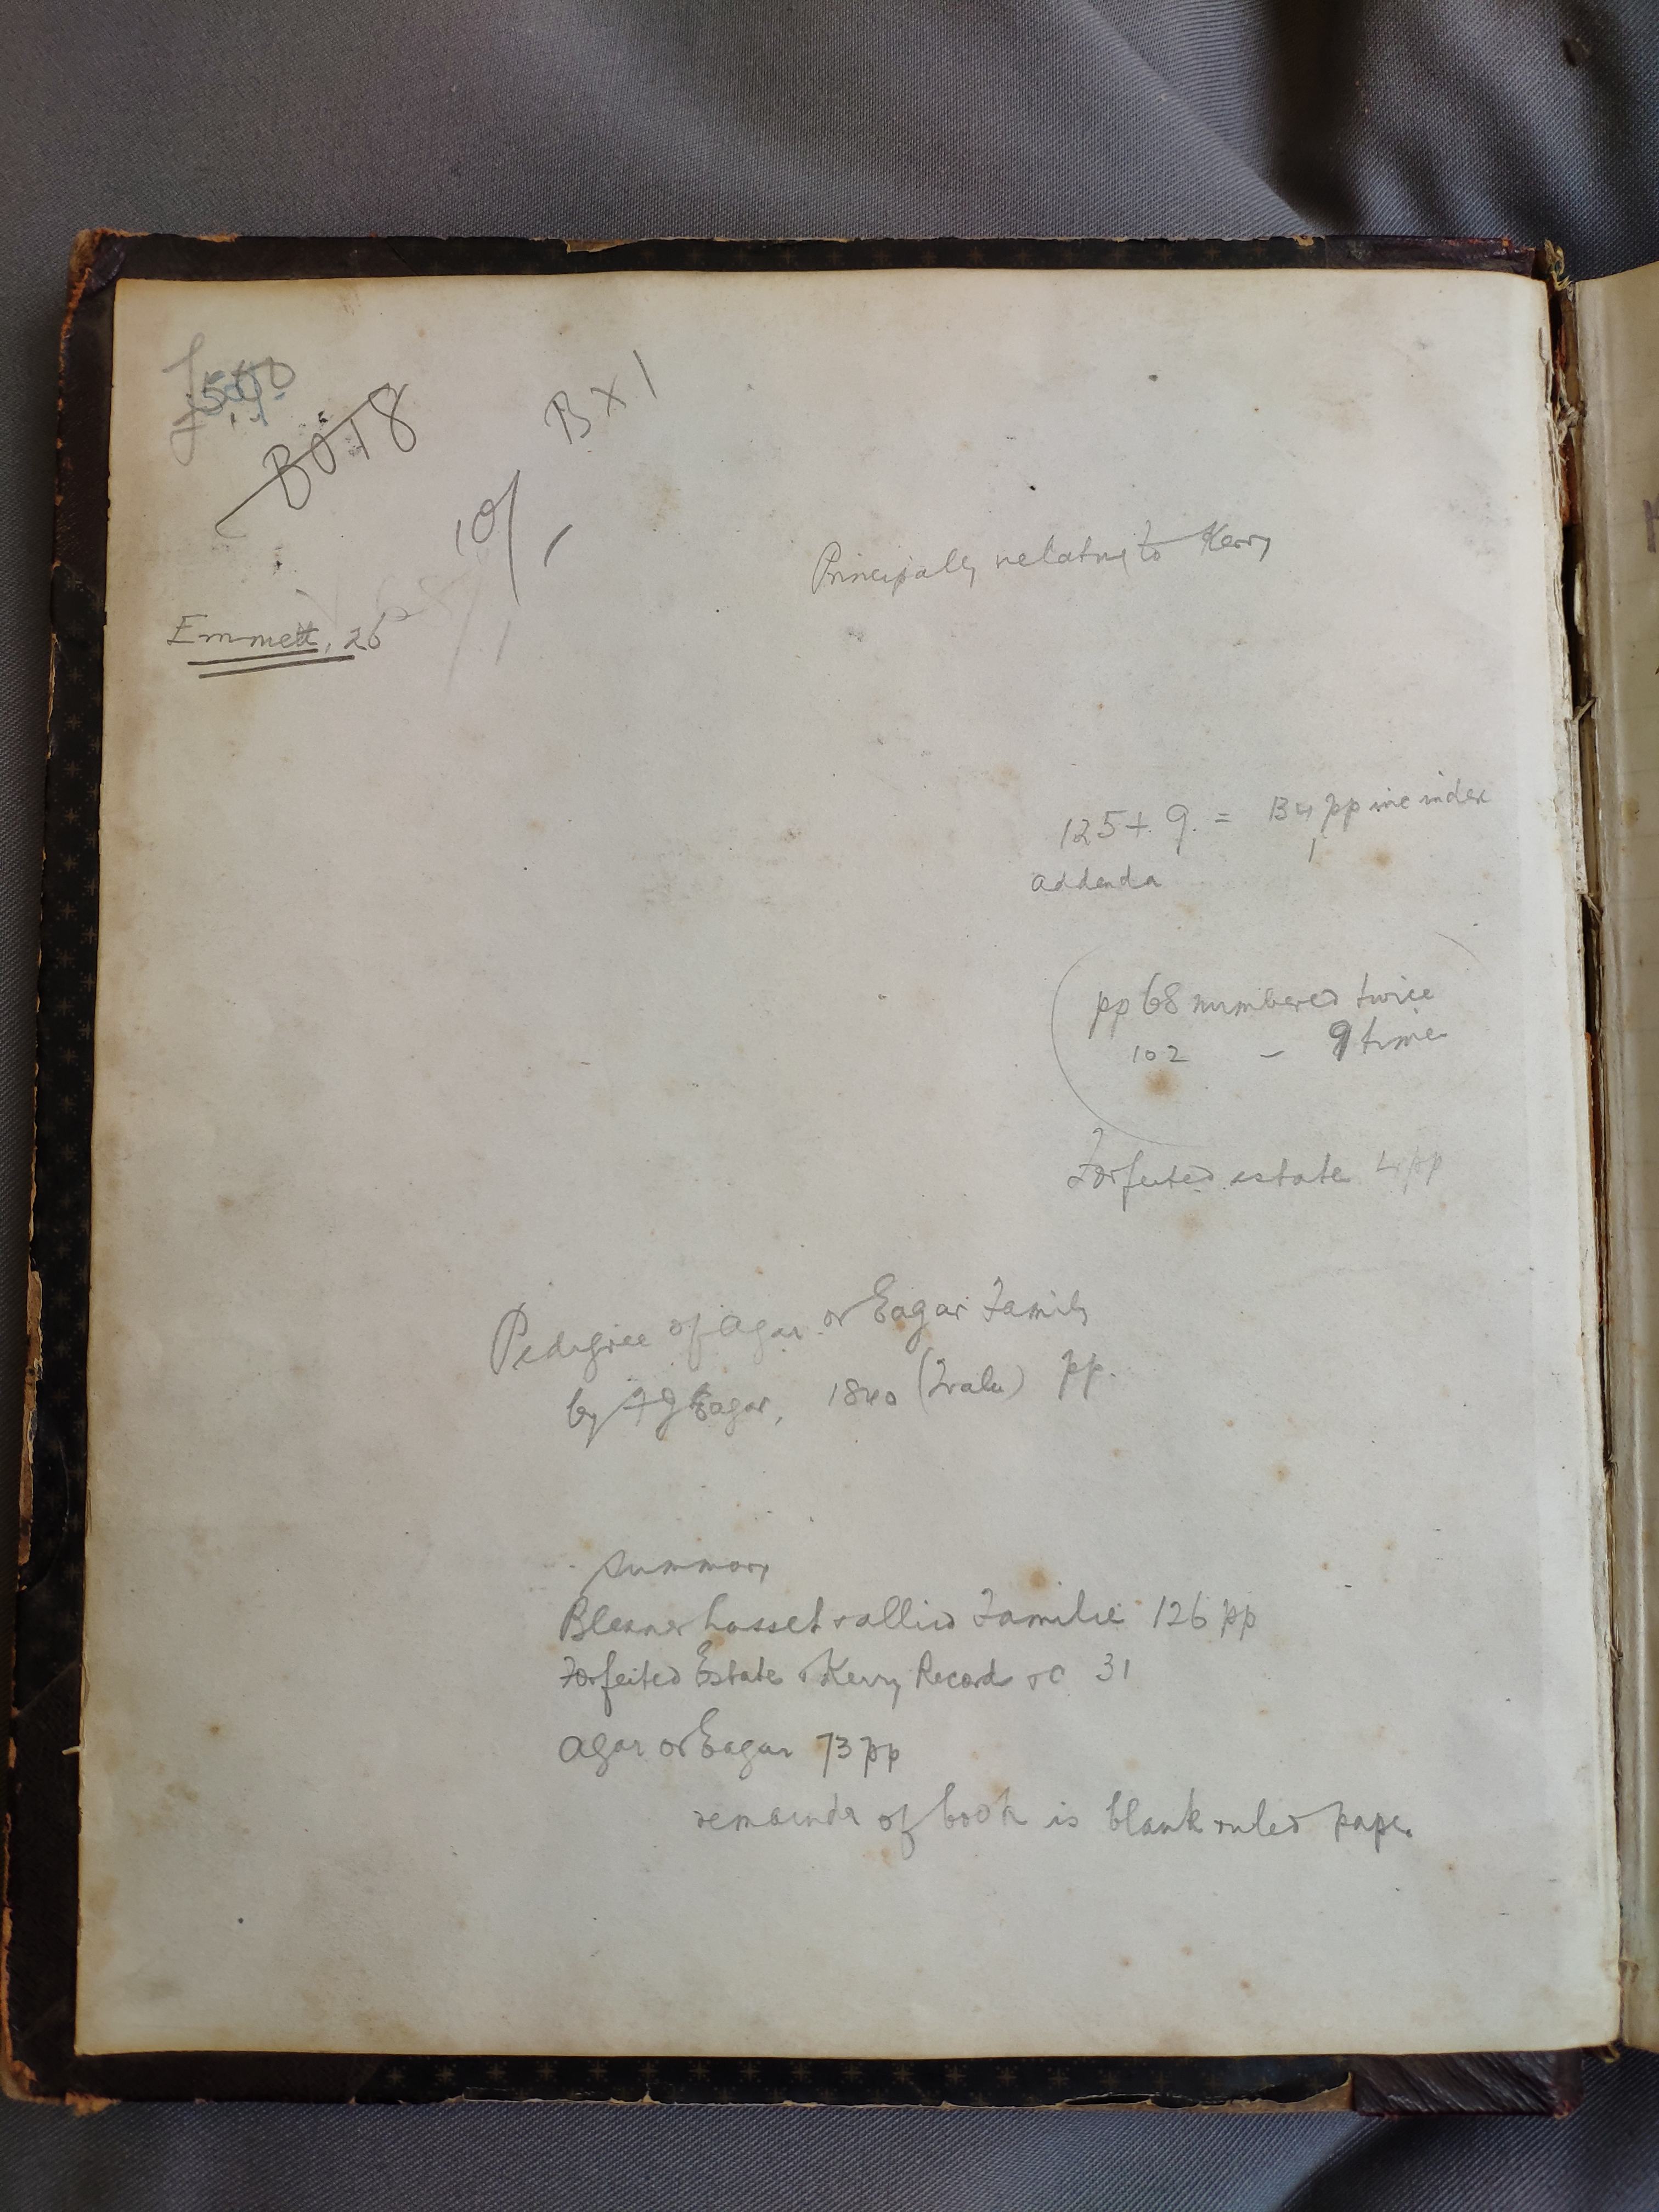 B018
B X 1
10/
Principally relating to Kerry
Emmett, 26
125 + 9 = 134 pp inc index
addenda
pp 68 numbered twice
102 - 9 time
Forfeited estate 4 pp
Pedigree of Agar or Eagar Family
by F J Eagar, 1860 (Tralee) pp.
Summary
Blennerhasset & allied Familie 126 pp
Forfeited Estate & Kerry Records &c 31
Agar or Eagar 73 pp
remainder of book is blank ruled paper